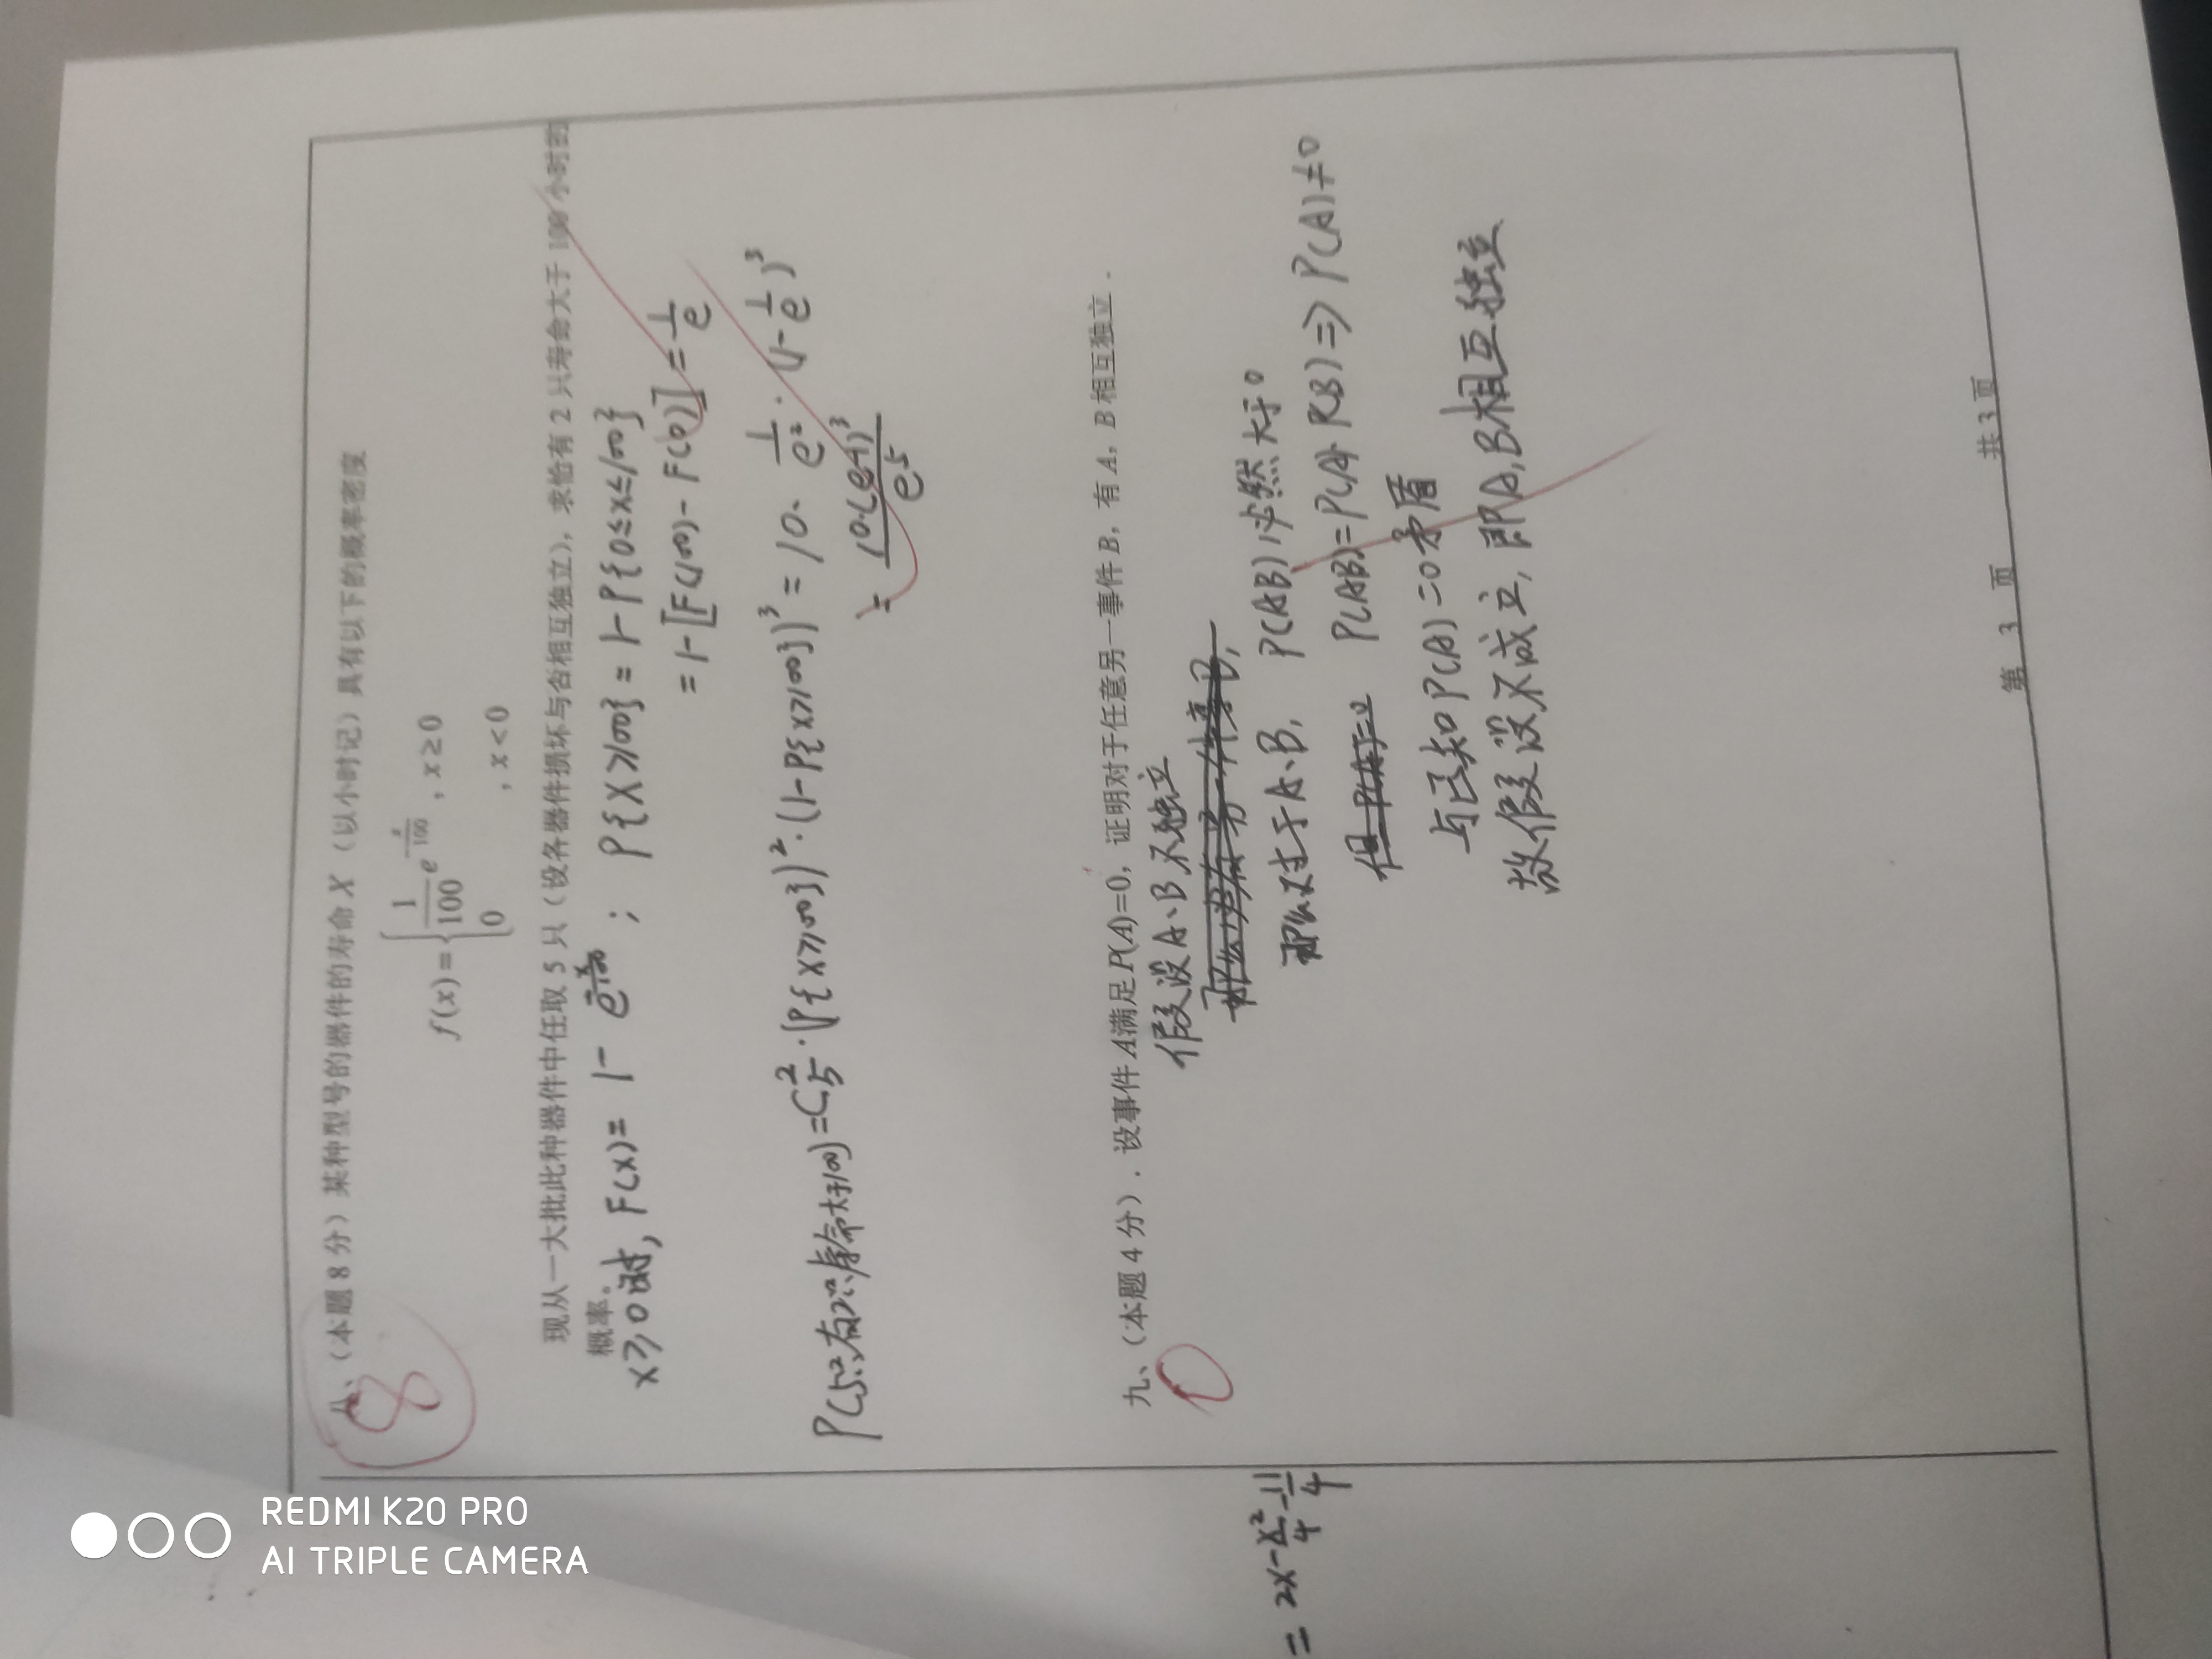 八、（本题 8 分）某种型号的器件的寿命 X （以小时记）具有以下的概率密度
8
f(x)={ 1/100 e^{-x/100} , x≥0
0 , x<0
现从一大批此种器件中任取 5 只（设各器件损坏与否相互独立），求恰有 2 只寿命大于 100 小时的
概率。
x≥0时, F(x)= 1- e^{-x/100} ; P{X≥100} = 1-P{0≤x≤100}
= 1-[F(100)- F(0)] = 1/e
P(5只有2只寿命大于100)=C_5^2·(P{x≥100})^2·(1-P{x≥100})^3 = 10· 1/e^2 ·(1-1/e)^3
= 10·(e-1)^3/e^5
九、（本题 4 分）. 设事件 A满足 P(A)=0，证明对于任意另一事件 B，有 A，B 相互独立．
0
假设A、B不独立
那么必有另一件事B,
那么对于A、B, P(AB)必然大于0
但P(A)=0 P(AB)=P(A)·P(B)⇒P(A)≠0
与已知P(A)=0矛盾
故假设不成立, 即A,B相互独立
= 2x-x^2/4-11/4
第 3 页 共 3 页
REDMI K20 PRO
AI TRIPLE CAMERA